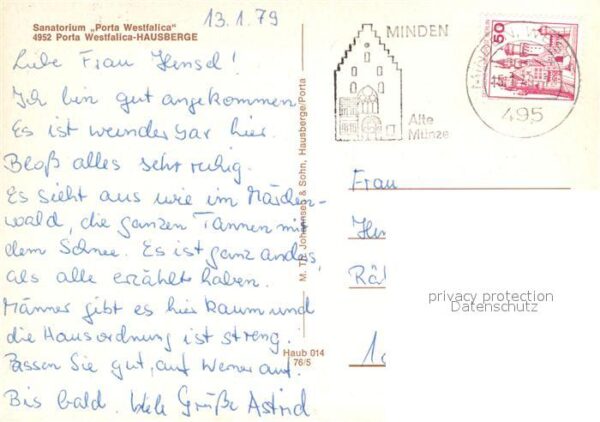 13.1.79
Sanatorium „Porta Westfalica"
4952 Porta Westfalica-HAUSBERGE
Liebe Frau Hensel!
Ich bin gut angekommen.
Es ist wunderbar hier.
Bloß alles sehr ruhig.
Es sieht aus wie im Märchen-
wald, die ganzen Tannen mit
dem Schnee. Es ist ganz anders,
als alle erzählt haben.
Männer gibt es hier kaum und
die Hausordnung ist streng.
Passen Sie gut auf Werner auf.
Bis bald. Viele Grüße Astrid
M. Th. Johannsen & Sohn, Hausberge/Porta
Haub 014
76/5
MINDEN
Alte
Münze
MINDEN, W
495
50
Frau
Hen
privacy protection
Datenschutz